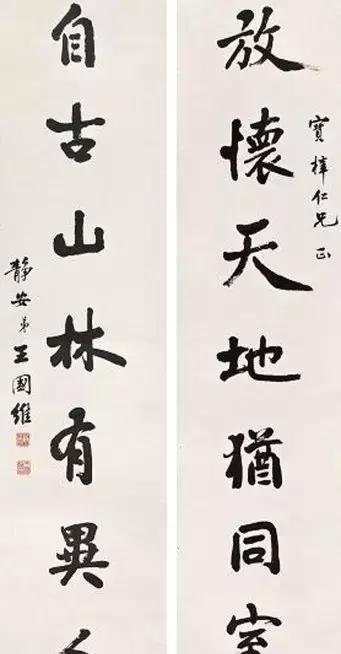 寶梓仁兄 正
放懷天地猶同室
自古山林有異
靜安弟王國維